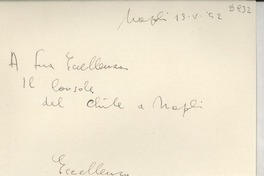 Napoli 13-V-'52
B832
A Sua Eccellenza
Il Console
del Chile a Napoli
Eccellenza